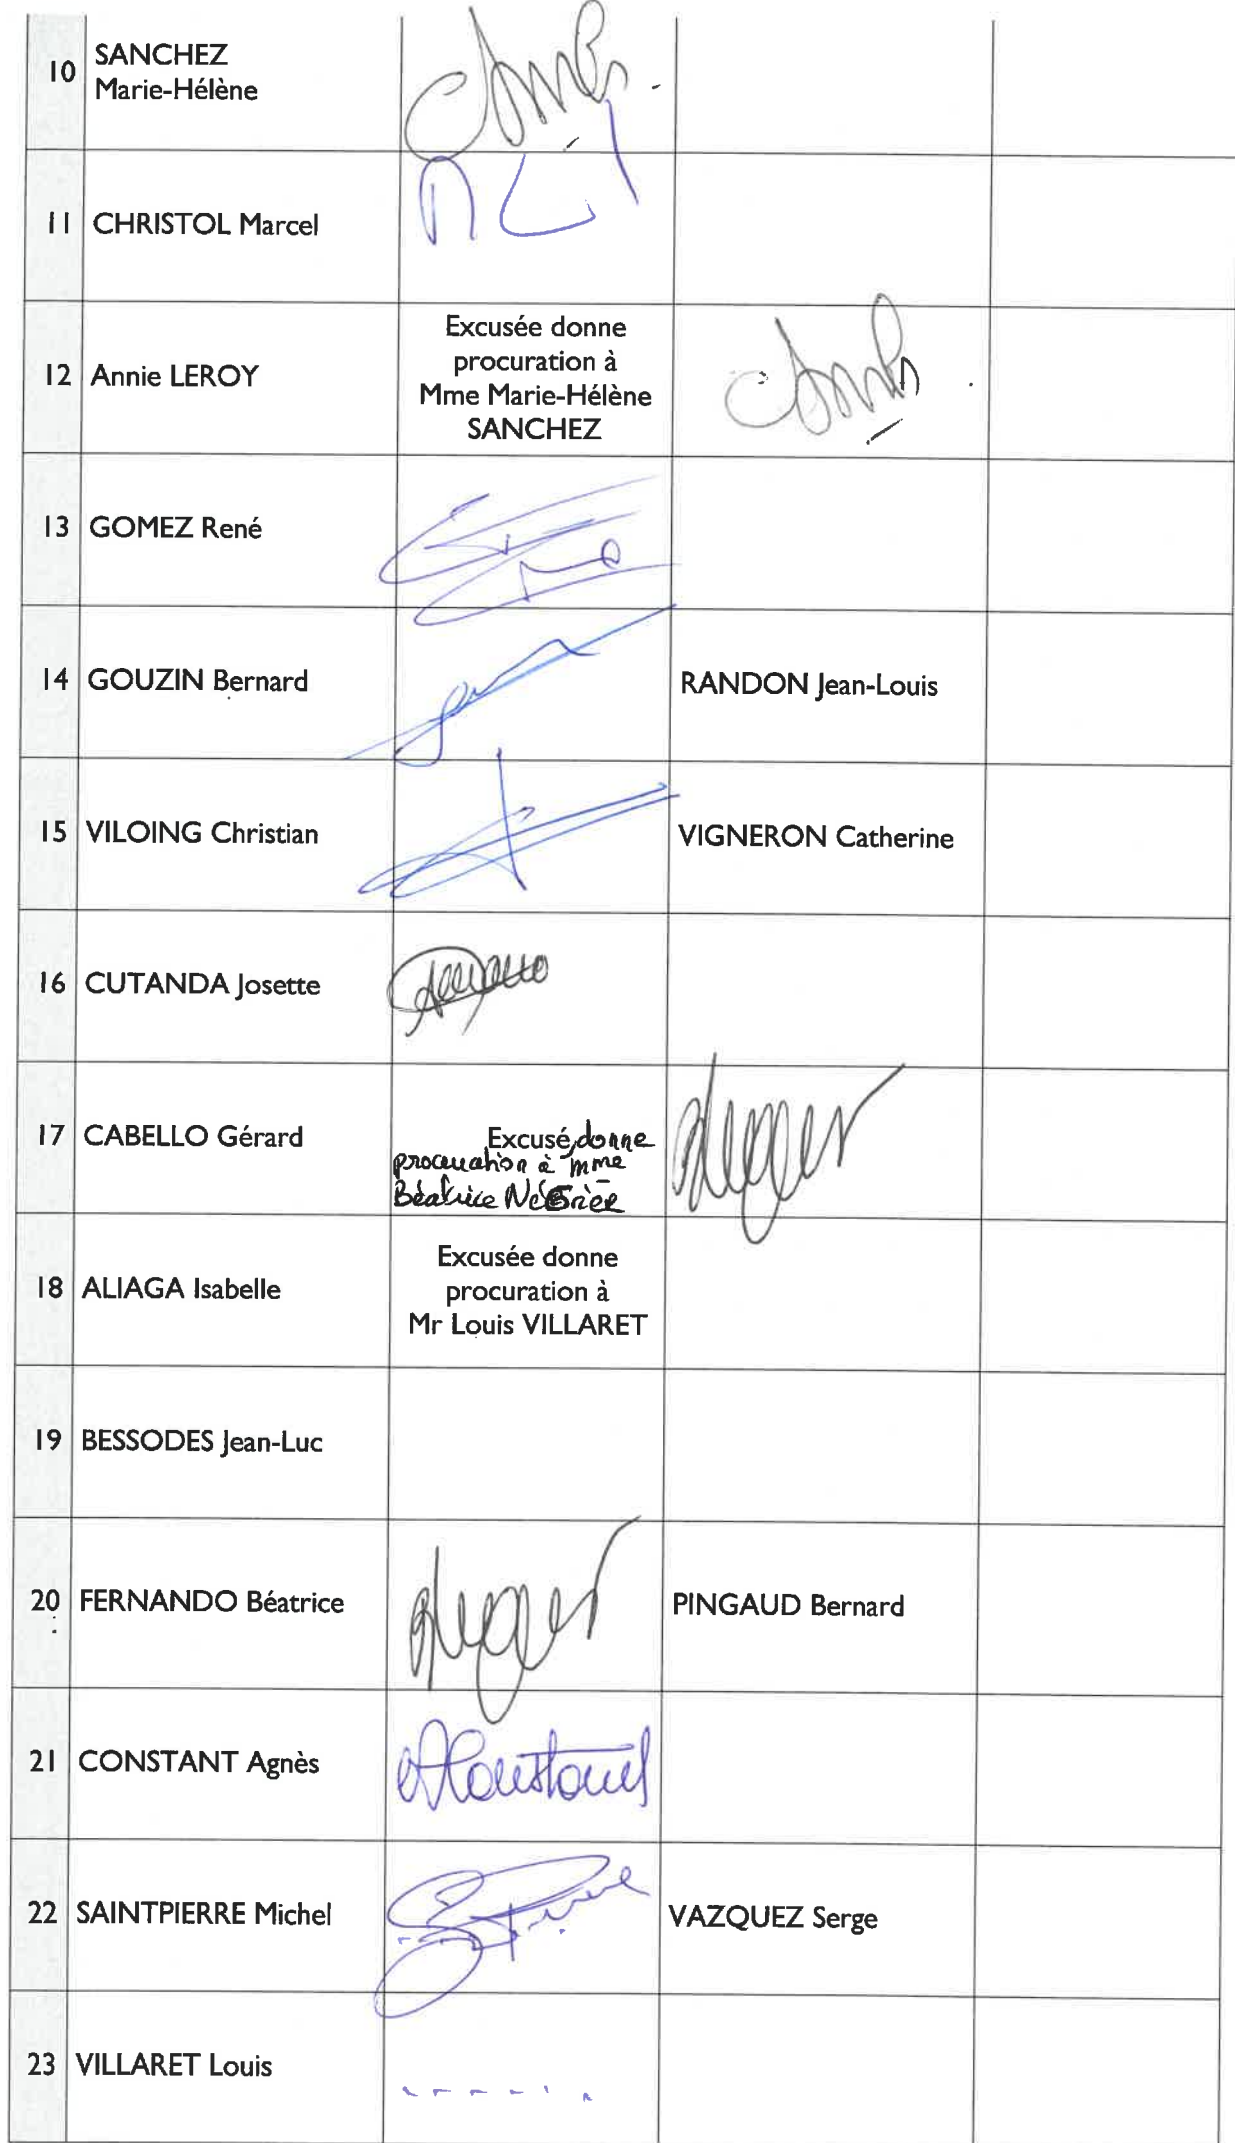 10 SANCHEZ
Marie-Hélène
11 CHRISTOL Marcel
12 Annie LEROY
Excusée donne
procuration à
Mme Marie-Hélène
SANCHEZ
13 GOMEZ René
14 GOUZIN Bernard RANDON Jean-Louis
15 VILOING Christian VIGNERON Catherine
16 CUTANDA Josette
17 CABELLO Gérard
Excusé, donne
procuration à mme
Béatrice
18 ALIAGA Isabelle
Excusée donne
procuration à
Mr Louis VILLARET
19 BESSODES Jean-Luc
20 FERNANDO Béatrice PINGAUD Bernard
21 CONSTANT Agnès
22 SAINTPIERRE Michel VAZQUEZ Serge
23 VILLARET Louis